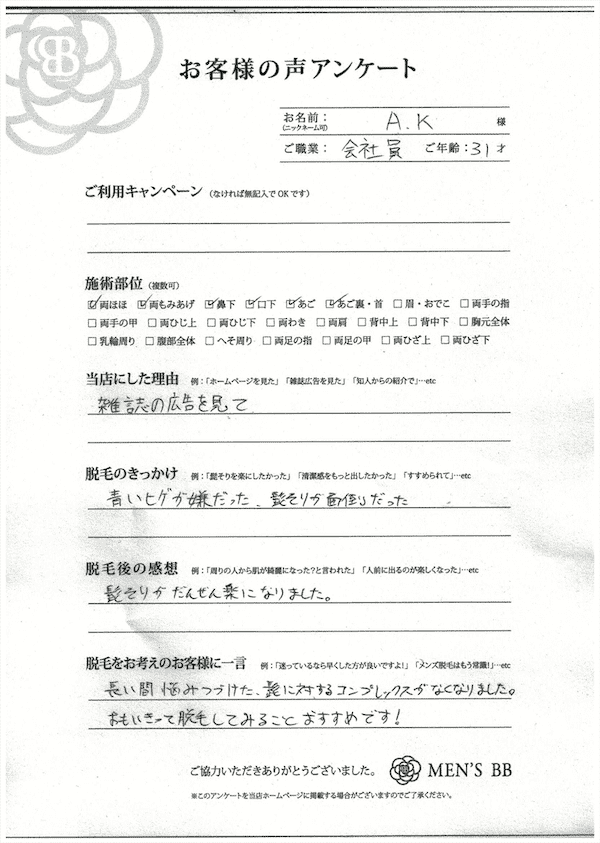 BB
お客様の声アンケート
お名前：(ニックネーム可) A.K 様
ご職業： 会社員 ご年齢：31才
ご利用キャンペーン (なければ無記入でOKです)
施術部位 (複数可)
☑両ほほ ☑両もみあげ ☑鼻下 ☑口下 ☑あご ☑あご裏・首 □眉・おでこ □両手の指
□両手の甲 □両ひじ上 □両ひじ下 □両わき □両肩 □背中上 □背中下 □胸元全体
□乳輪周り □腹部全体 □へそ周り □両足の指 □両足の甲 □両ひざ上 □両ひざ下
当店にした理由 例：「ホームページを見た」「雑誌広告を見た」「知人からの紹介で」…etc
雑誌の広告を見て
脱毛のきっかけ 例：「髭そりを楽にしたかった」「清潔感をもっと出したかった」「すすめられて」…etc
青いヒゲが嫌だった、髭そりが面倒だった
脱毛後の感想 例：「周りの人から肌が綺麗になった?と言われた」「人前に出るのが楽しくなった」…etc
髭そりがだんぜん楽になりました。
脱毛をお考えのお客様に一言 例：「迷っているなら早くした方が良いですよ!」「メンズ脱毛はもう常識!」…etc
長い間悩みつづけた、髭に対するコンプレックスがなくなりました。
おもいきって脱毛してみることおすすめです!
ご協力いただきありがとうございました。 MEN'S BB
※このアンケートを当店ホームページに掲載する場合がございますのでご了承ください。